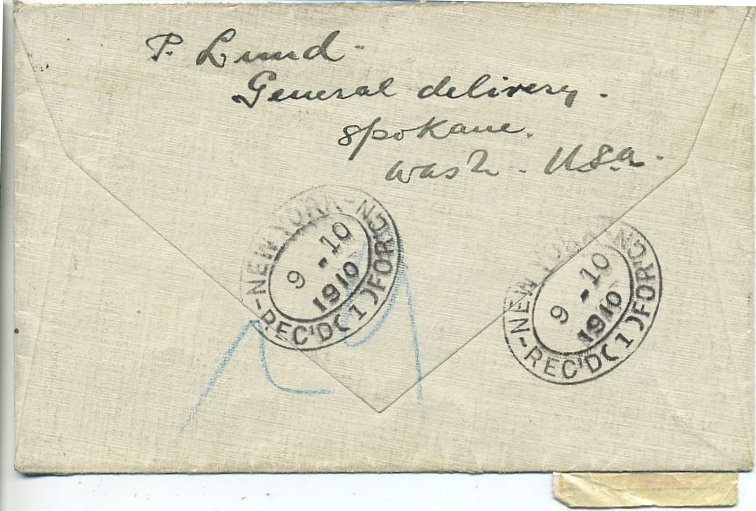 P. Lund.
General delivery.
Spokane.
Wash. U.S.a.
-NEW YORK-
9-10
1910
REC'D(1)FOR'GN
-NEW YORK
9-10
1910
-REC'D(1)FOR'GN